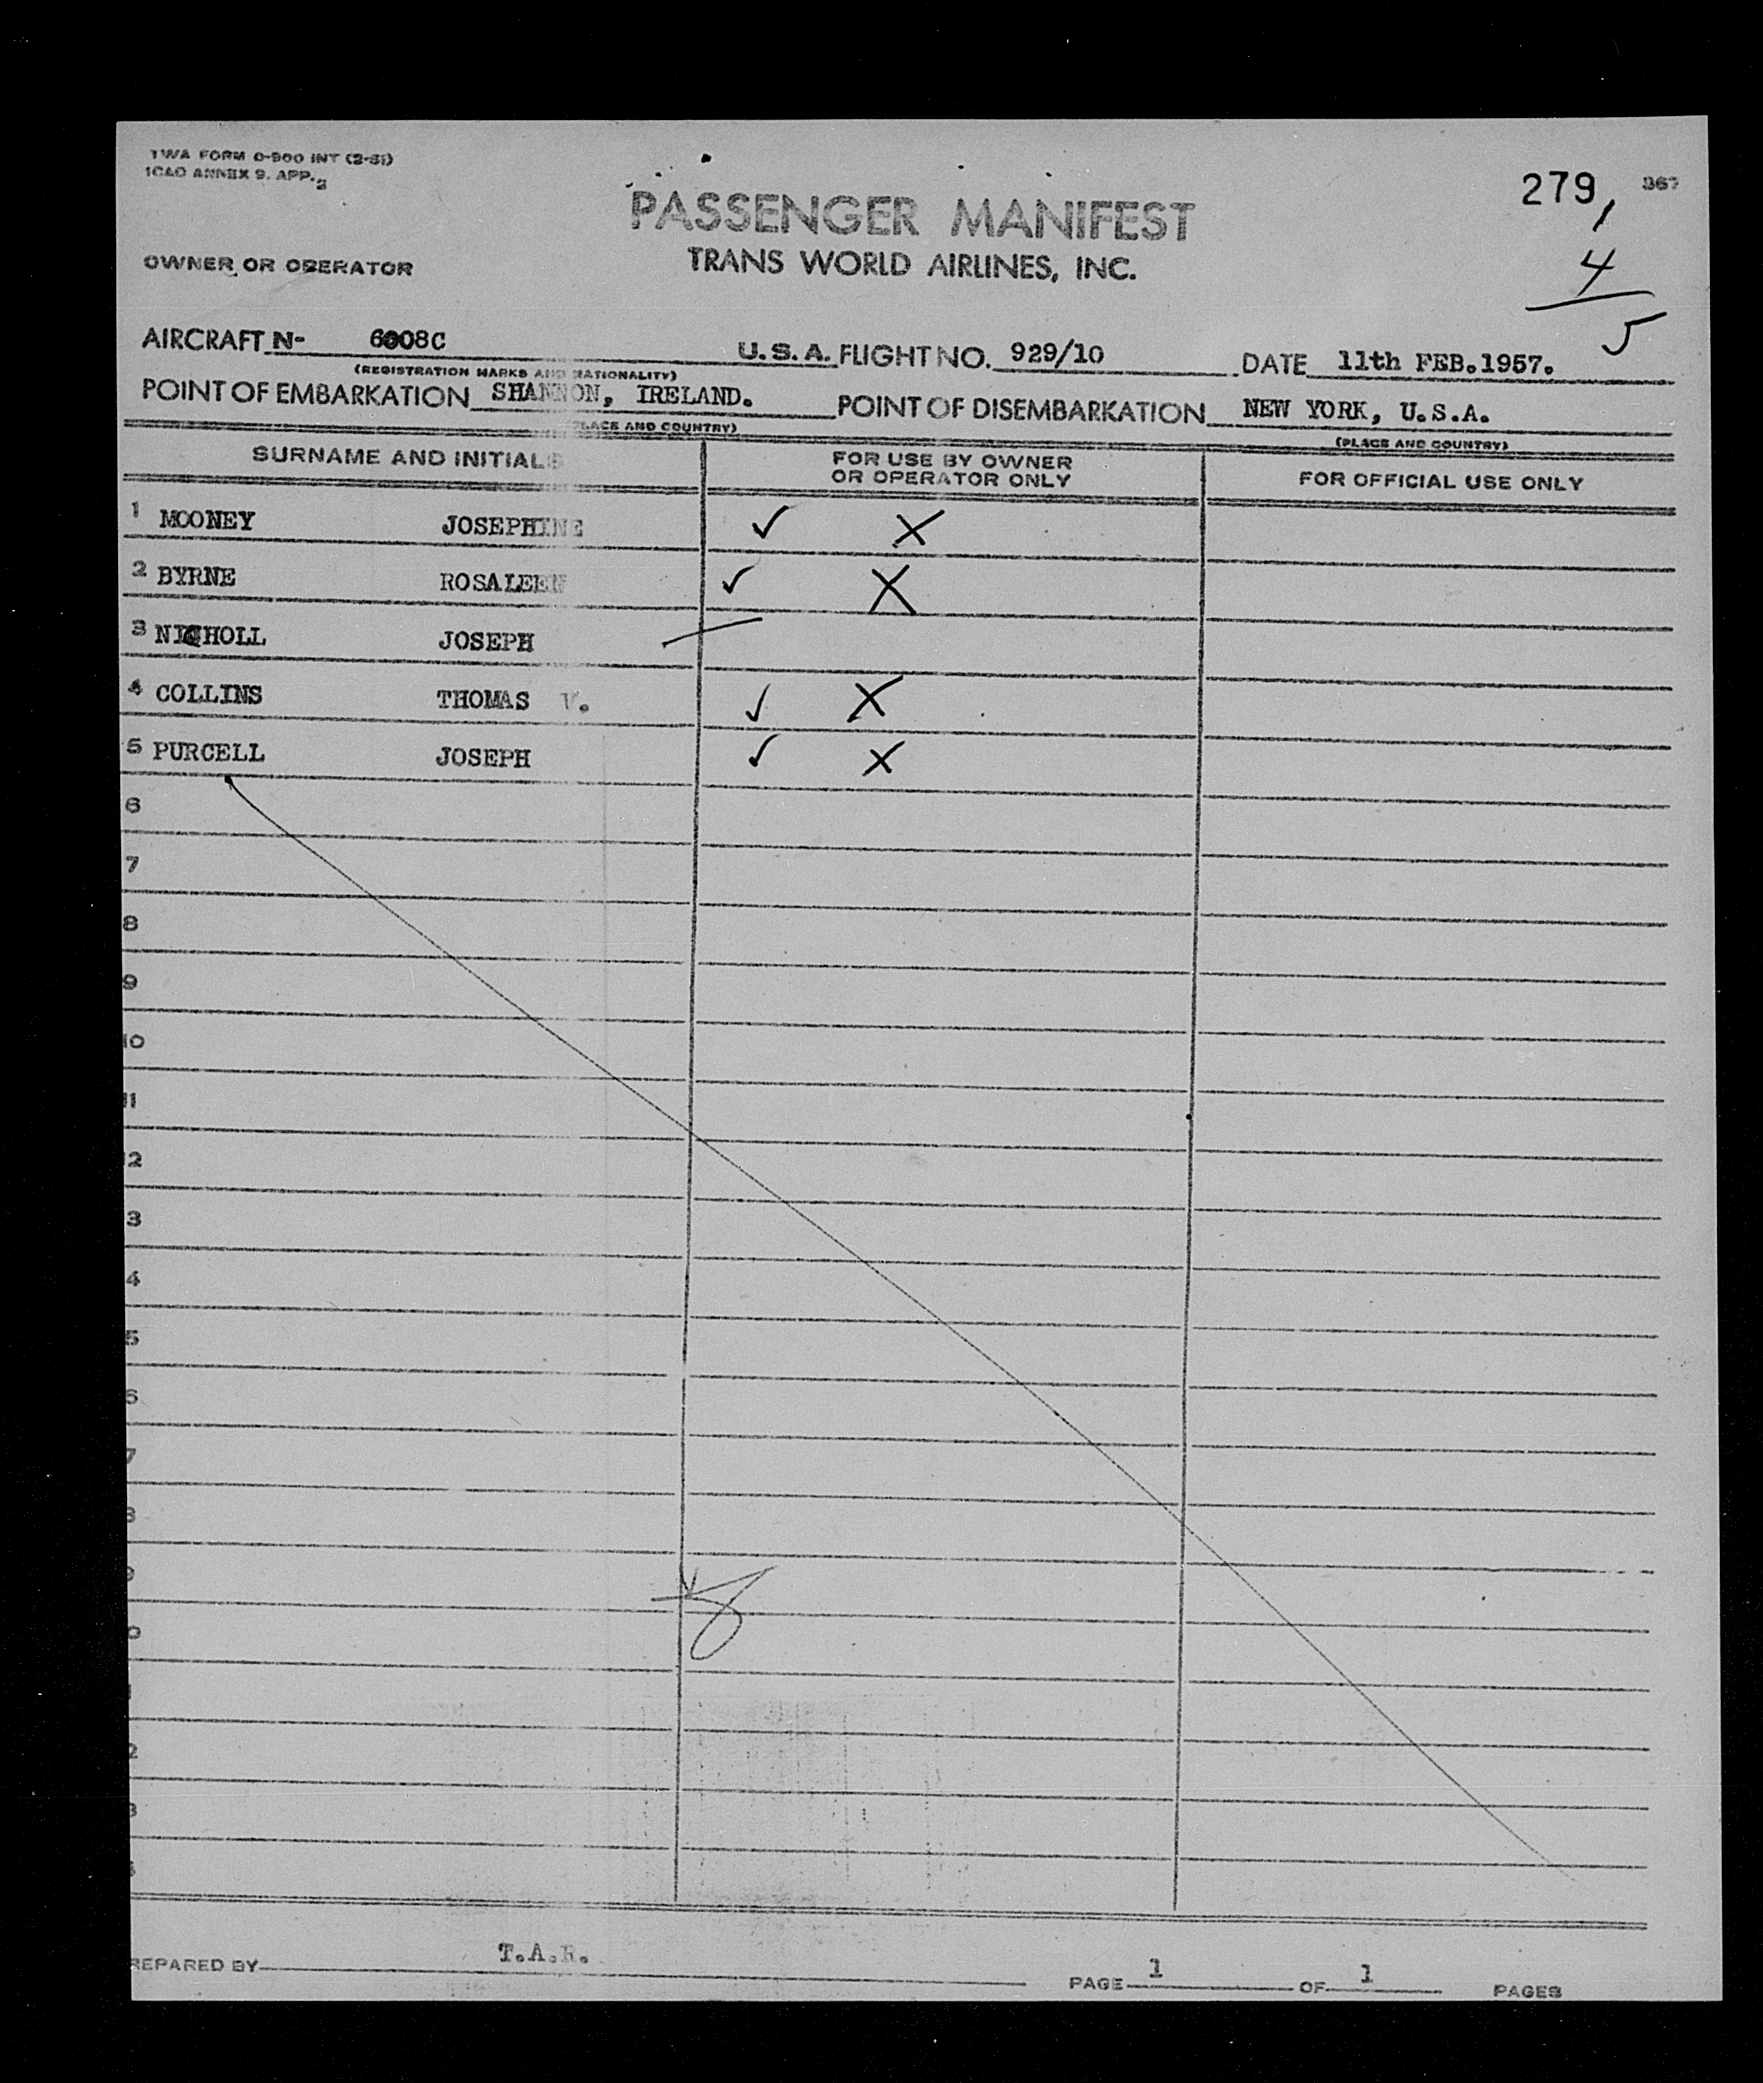 TWA FORM O-900 INT (2-51)
ICAO ANNEX 9. APP. 2
279, 367
PASSENGER MANIFEST
4
OWNER OR OPERATOR TRANS WORLD AIRLINES, INC.
5
AIRCRAFT N- 6008C U.S.A. FLIGHT NO. 929/10 DATE 11th FEB.1957.
(REGISTRATION MARKS AND NATIONALITY)
POINT OF EMBARKATION SHANNON, IRELAND. POINT OF DISEMBARKATION NEW YORK, U.S.A.
(PLACE AND COUNTRY) (PLACE AND COUNTRY)
SURNAME AND INITIALS FOR USE BY OWNER OR OPERATOR ONLY FOR OFFICIAL USE ONLY
1 MOONEY JOSEPHINE ✓ X
2 BYRNE ROSALEEN ✓ X
3 NICHOLL JOSEPH
4 COLLINS THOMAS V. ✓ X
5 PURCELL JOSEPH ✓ X
6
7
8
9
10
11
2
3
4
5
6
7
8
9
0
2
3
REPARED BY T.A.R. PAGE 1 OF 1 PAGES